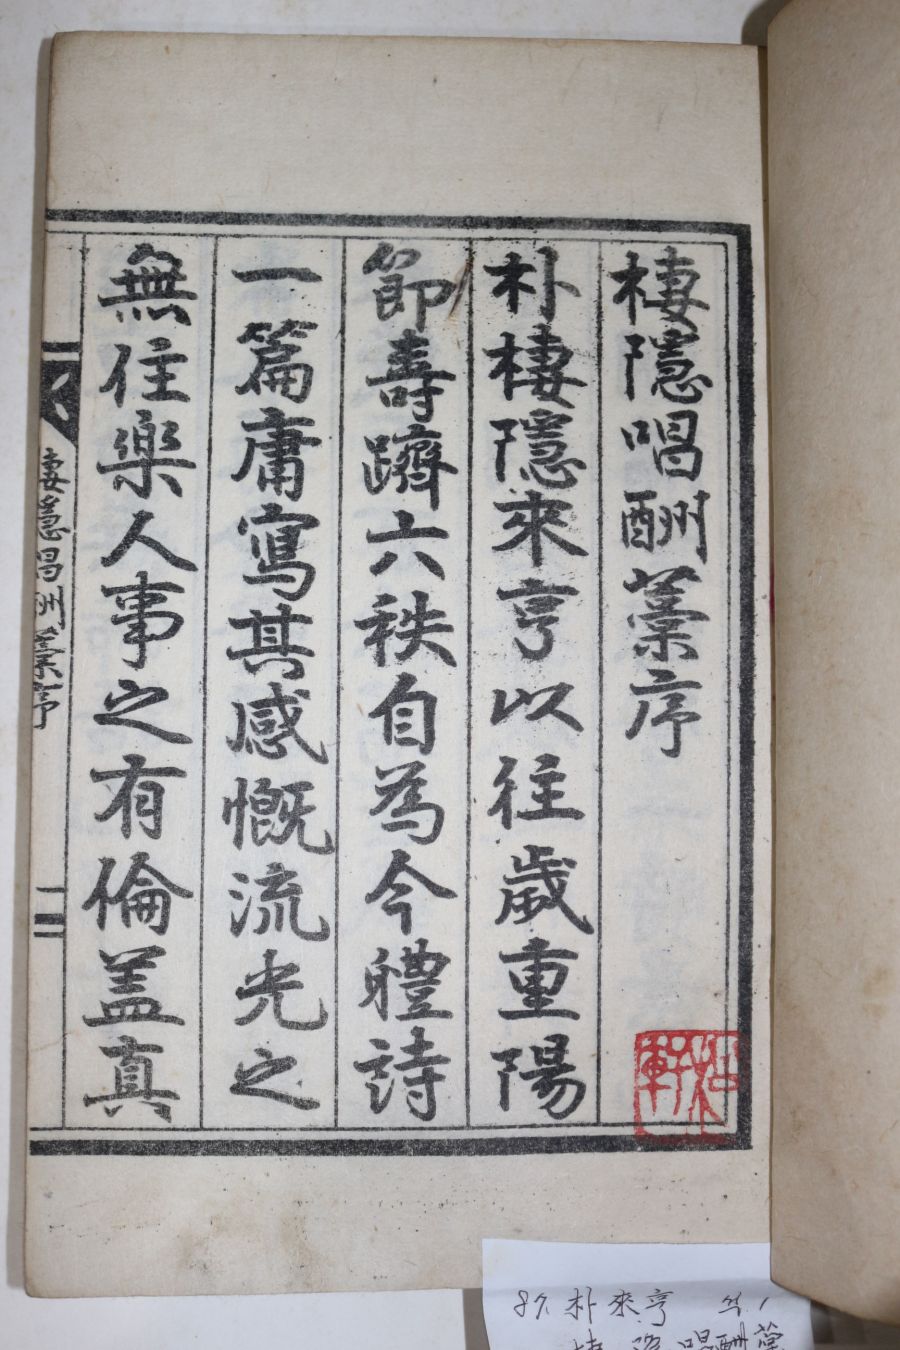 棲隱唱酬藁序
朴棲隱來亨以往歲重陽
節壽躋六秩自為今軆詩
一篇庸寫其感慨流光之
無住樂人事之有倫盖真
棲隱唱酬藁序
一
朴來亨
唱酬藁